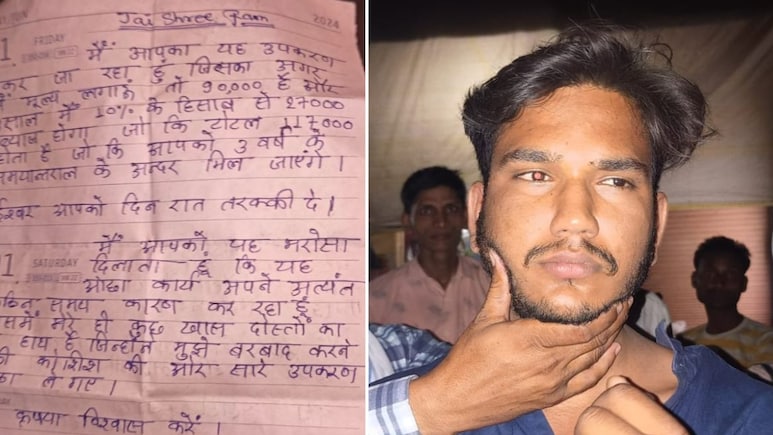 Jai Shree Ram
2024
1 FRIDAY
मैं आपका यह उपकरण
कर जा रहा हुं जिसका अगर
मूल्य लगाऊं तो 90,000 है और
साल में 10% के हिसाब से 27000
ब्याज होगा जो कि टोटल 117000
होता है जो कि आपको 3 वर्ष के
समयान्तराल के अन्दर मिल जाएंगे ।
ईश्वर आपको दिन रात तरक्की दे ।
मैं आपको यह भरोसा
1 SATURDAY दिलाता हूं कि यह
कार्य अपने अत्यंत
कठिन समय कारण कर रहा हूं
मेरे ही कुछ खास दोस्तो का
हाथ है जिन्होंने मुझे बरबाद करने
की कोशिश की और सारे उपकरण
ले गए ।
कृपया विश्वास करें ।